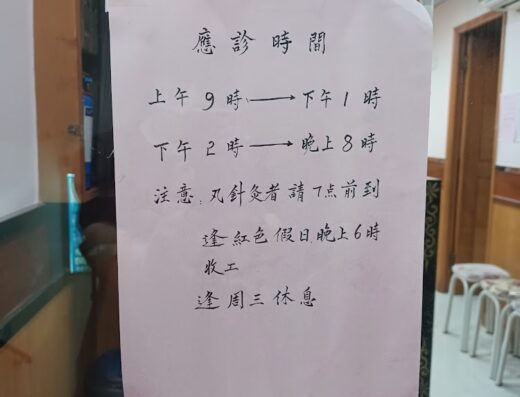 應診時間
上午9時→下午1時
下午2時→晚上8時
注意:凡針灸者請7点前到
逢紅色假日晚上6時
收工
逢周三休息